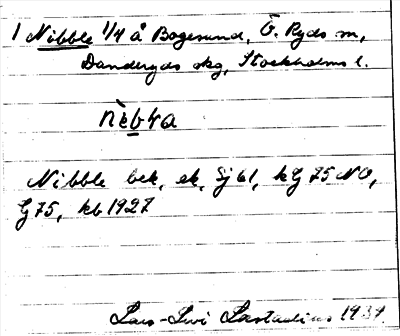 1 Nibble 1/4 å Bogesund, Ö. Ryds sn,
Danderyds skg, Stockholms l.
Nibble bek, ek, Sj 61, kG 75 NO,
G 75, kb 1927
Lars-Levi Læstadius 1934